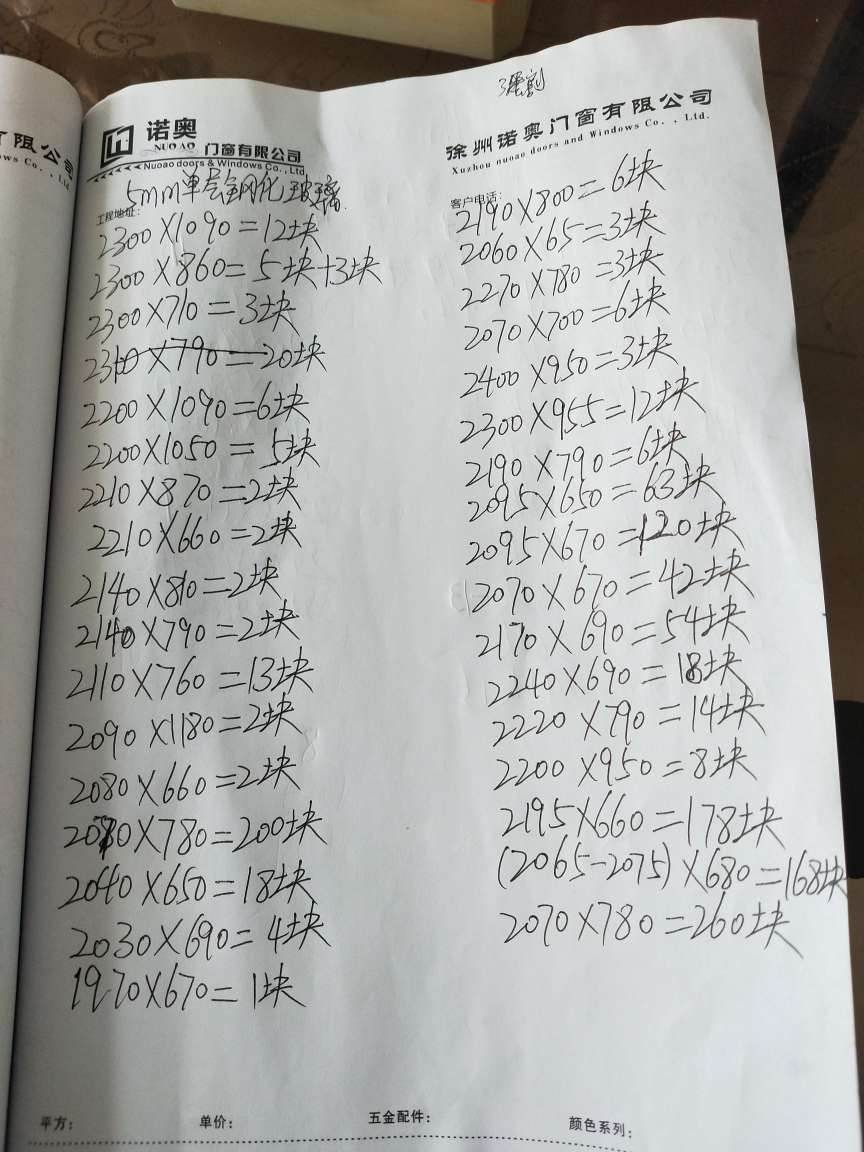 诺奥
NUOAO 门窗有限公司
Nuoao doors & Windows Co.,Ltd
徐州诺奥门窗有限公司
Xuzhou nuoao doors and Windows Co.，Ltd.
有限公司
ows Co.，Ltd.
工程地址：
客户电话：
5mm单层钢化玻璃
2300×1090=12块
2300×860=5块+3块
2300×710=3块
2300×790=20块
2200×1090=6块
2200×1050=5块
2210×870=2块
2210×660=2块
2140×810=2块
2140×790=2块
2110×760=13块
2090×1180=2块
2080×660=2块
2080×780=200块
2040×650=18块
2030×690=4块
1970×670=1块
2190×800=6块
2060×65=3块
2270×780=3块
2070×700=6块
2400×950=3块
2300×955=12块
2190×790=6块
2095×650=63块
2095×670=120块
2070×670=42块
2170×690=54块
2240×690=18块
2220×790=14块
2200×950=8块
2195×660=178块
(2065-2075)×680=168块
2070×780=260块
平方：
单价：
五金配件：
颜色系列：